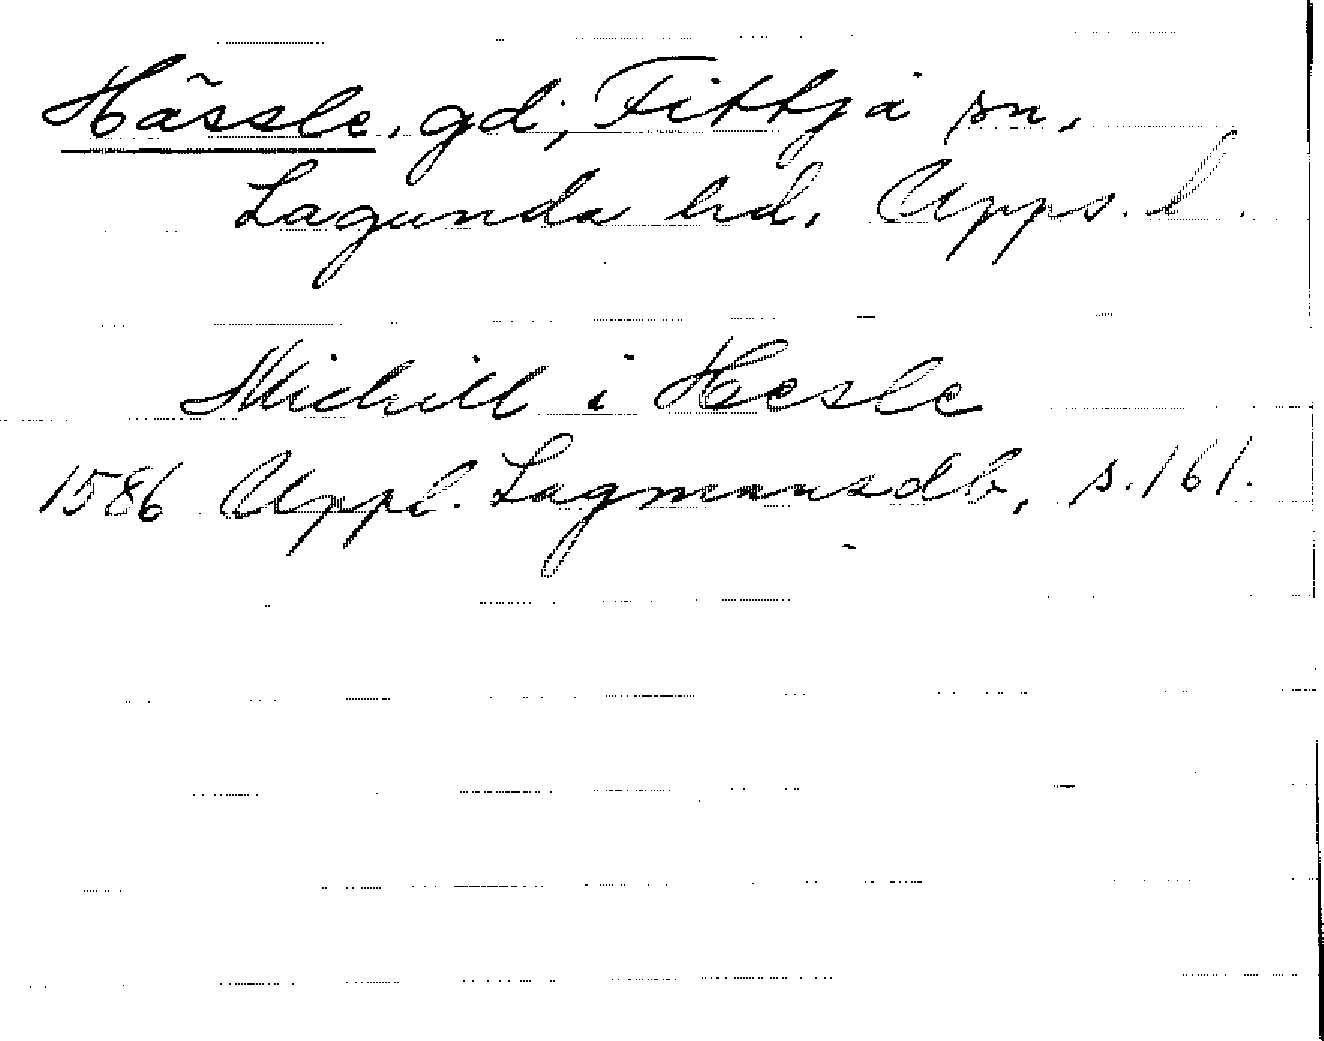 Hässle, gd, Fittja sn,
Lagunda hd, Upps. l.
Michill i Hesle
1586 Uppl. Lagmansdb, s. 161.